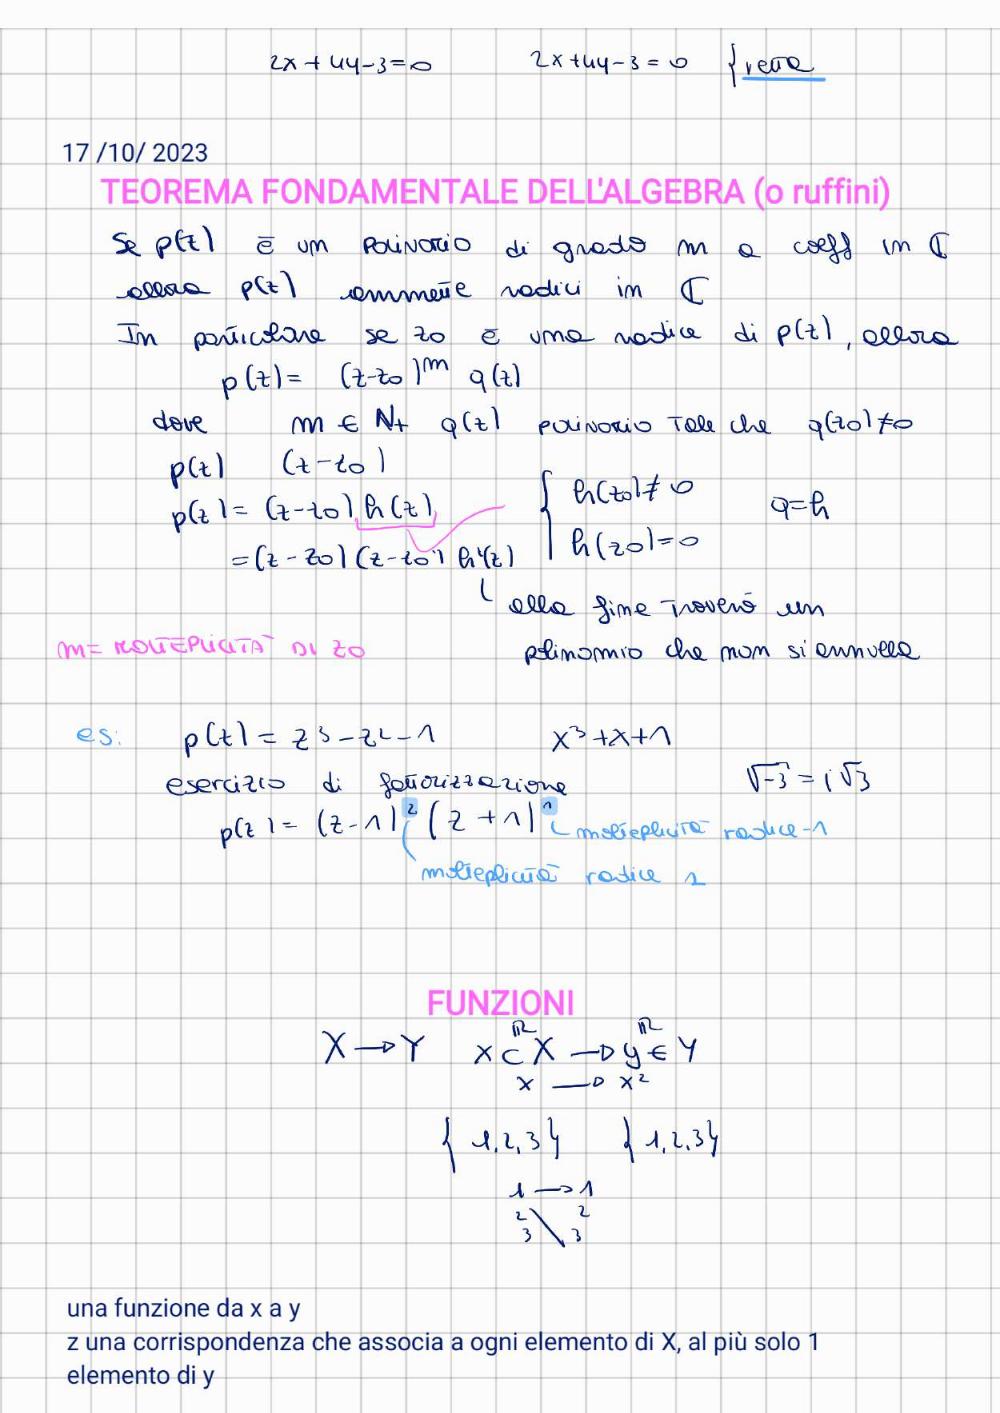 2x+4y-3=0 2x+4y-3=0 {retta
17/10/2023
TEOREMA FONDAMENTALE DELL'ALGEBRA (o ruffini)
Se p(z) è un polinomio di grado m a coeff in ℂ
allora p(z) ammette radici in ℂ
In particolare se z0 è una radice di p(z), allora
p(z)= (z-z0)^m q(z)
dove m ∈ N+ q(z) polinomio tale che q(z0)≠0
p(z) (z-z0)
p(z)=(z-z0) h(z) { h(z0)≠0 q=h
=(z-z0)(z-z0) h'(z) h(z0)=0
alla fine troverò un
m= MOLTEPLICITÀ DI z0 polinomio che non si annulla
es: p(z)= z3-z2-1 x³+x+1
esercizio di fattorizzazione √-3=i√3
p(z)= (z-1)² (z+1)¹ molteplicità radice -1
molteplicità radice 1
FUNZIONI
ℝ ℝ
X→Y x⊂X → y∈Y
x → x²
{1,2,3} {1,2,3}
1→1
2 \ 2
3 3
una funzione da x a y
z una corrispondenza che associa a ogni elemento di X, al più solo 1
elemento di y